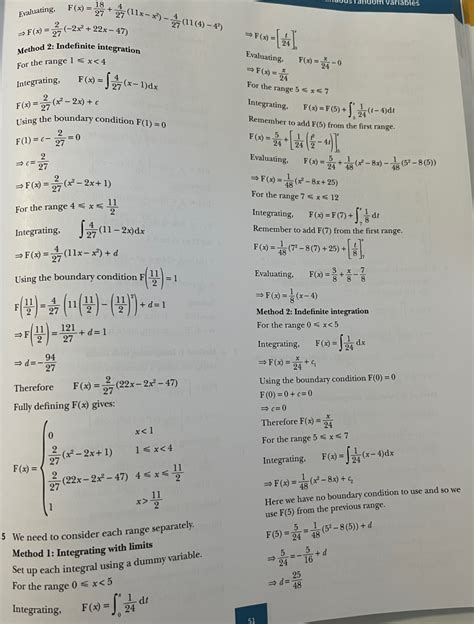 random variables
Evaluating, F(x) = 18/27 + 4/27 (11x − x²) − 4/27 (11(4) − 4²)
⇒ F(x) = 2/27 (−2x² + 22x − 47)
Method 2: Indefinite integration
For the range 1 ⩽ x < 4
Integrating, F(x) = ∫ 4/27 (x − 1)dx
F(x) = 2/27 (x² − 2x) + c
Using the boundary condition F(1) = 0
F(1) = c − 2/27 = 0
⇒ c = 2/27
⇒ F(x) = 2/27 (x² − 2x + 1)
For the range 4 ⩽ x ⩽ 11/2
Integrating, ∫ 4/27 (11 − 2x)dx
⇒ F(x) = 4/27 (11x − x²) + d
Using the boundary condition F(11/2) = 1
F(11/2) = 4/27 (11(11/2) − (11/2)²) + d = 1
⇒ F(11/2) = 121/27 + d = 1
⇒ d = − 94/27
Therefore F(x) = 2/27 (22x − 2x² − 47)
Fully defining F(x) gives:
F(x) = {
0 x < 1
2/27 (x² − 2x + 1) 1 ⩽ x < 4
2/27 (22x − 2x² − 47) 4 ⩽ x ⩽ 11/2
1 x > 11/2
5 We need to consider each range separately.
Method 1: Integrating with limits
Set up each integral using a dummy variable.
For the range 0 ⩽ x < 5
Integrating, F(x) = ∫₀ˣ 1/24 dt
⇒ F(x) = [t/24]₀ˣ
Evaluating, F(x) = x/24 − 0
⇒ F(x) = x/24
For the range 5 ⩽ x ⩽ 7
Integrating, F(x) = F(5) + ∫₅ˣ 1/24 (t − 4)dt
Remember to add F(5) from the first range.
F(x) = 5/24 + [1/24 (t²/2 − 4t)]₅ˣ
Evaluating, F(x) = 5/24 + 1/48 (x² − 8x) − 1/48 (5² − 8(5))
⇒ F(x) = 1/48 (x² − 8x + 25)
For the range 7 ⩽ x ⩽ 12
Integrating, F(x) = F(7) + ∫₇ˣ 1/8 dt
Remember to add F(7) from the first range.
F(x) = 1/48 (7² − 8(7) + 25) + [t/8]₇ˣ
Evaluating, F(x) = 3/8 + x/8 − 7/8
⇒ F(x) = 1/8 (x − 4)
Method 2: Indefinite integration
For the range 0 ⩽ x < 5
Integrating, F(x) = ∫ 1/24 dx
⇒ F(x) = x/24 + c₁
Using the boundary condition F(0) = 0
F(0) = 0 + c = 0
⇒ c = 0
Therefore F(x) = x/24
For the range 5 ⩽ x ⩽ 7
Integrating, F(x) = ∫ 1/24 (x − 4)dx
⇒ F(x) = 1/48 (x² − 8x) + c₂
Here we have no boundary condition to use and so we
use F(5) from the previous range.
F(5) = 5/24 = 1/48 (5² − 8(5)) + d
⇒ 5/24 = − 5/16 + d
⇒ d = 25/48
51